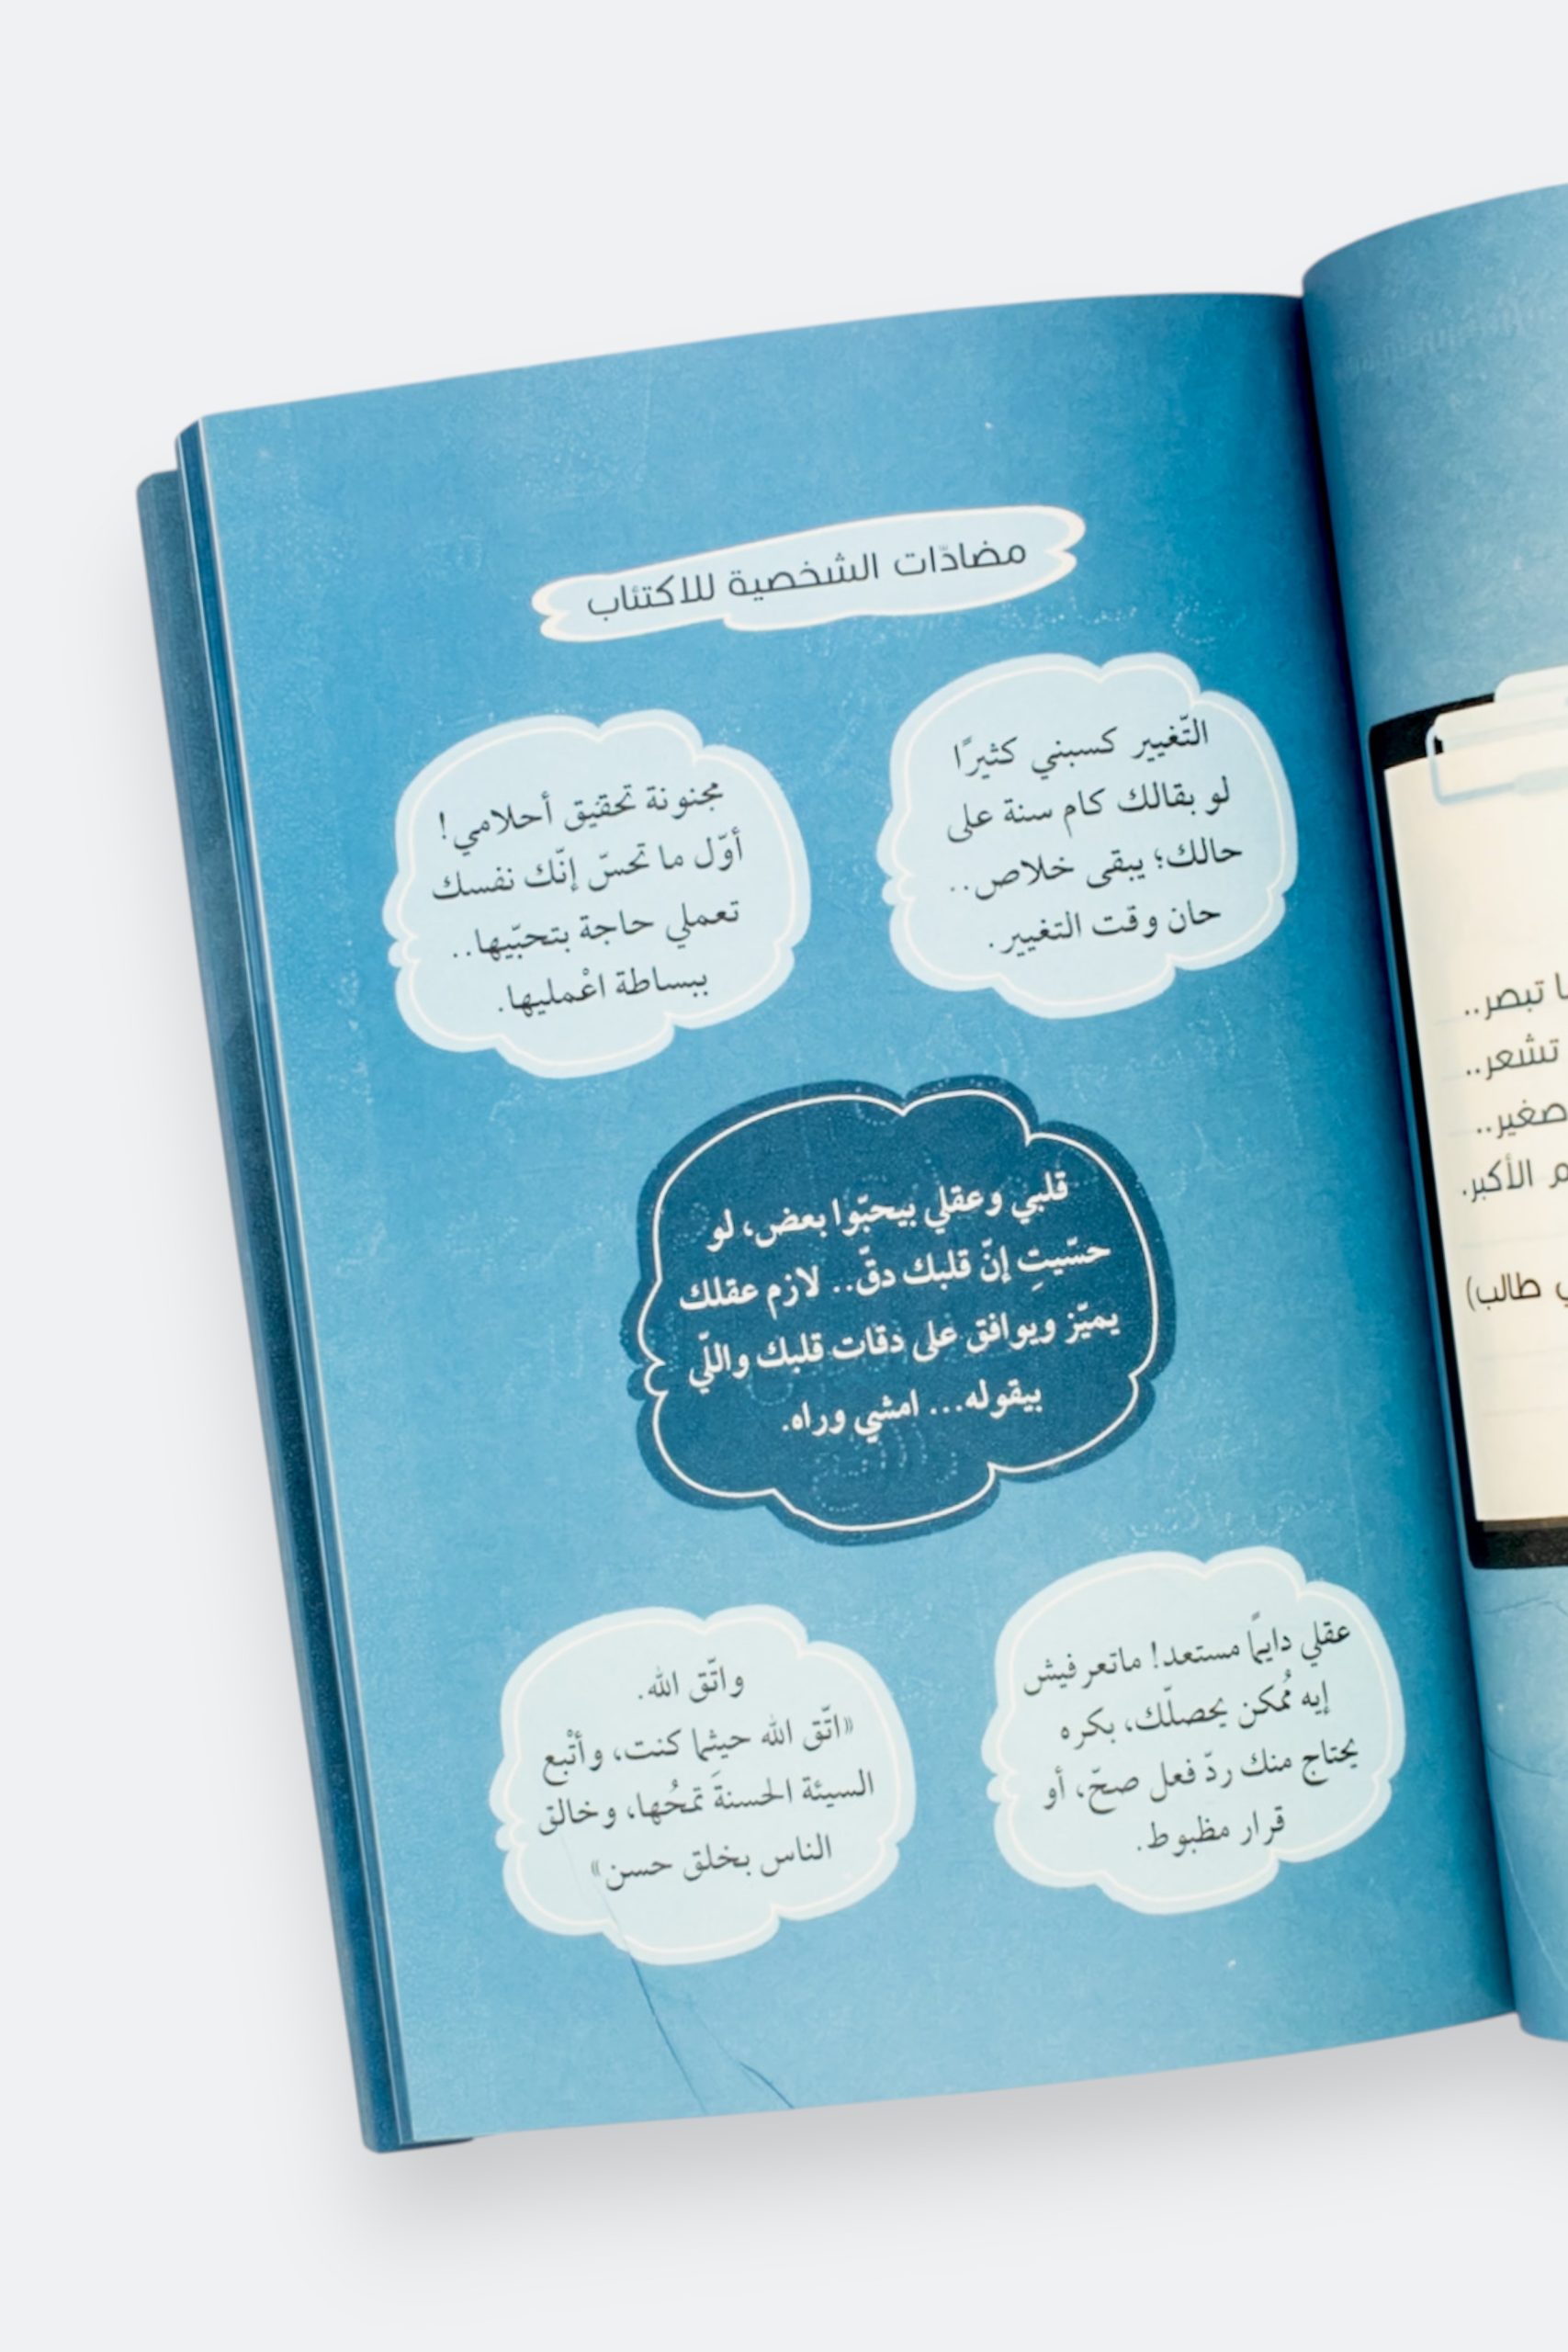 مضادّات الشخصية للاكتئاب
التّغيير كسبني كثيرًا
لو بقالك كام سنة على
حالك؛ يبقى خلاص..
حان وقت التغيير.
مجنونة تحقيق أحلامي!
أوّل ما تحسّ إنّك نفسك
تعملي حاجة بتحبّيها..
ببساطة اعْمليها.
قلبي وعقلي بيحبّوا بعض، لو
حسّيتِ إنّ قلبك دقّ.. لازم عقلك
يميّز ويوافق على دقات قلبك واللّي
بيقوله... امشي وراه.
عقلي دايمًا مستعد! ماتعرفيش
إيه مُمكن يحصلّك، بكره
يحتاج منك ردّ فعل صحّ، أو
قرار مظبوط.
واتّق الله.
«اتّق الله حيثما كنت، وأتْبع
السيئة الحسنةَ تمحُها، وخالق
الناس بخلق حسن»
تبصر..
تشعر..
صغير..
الأكبر.
طالب)